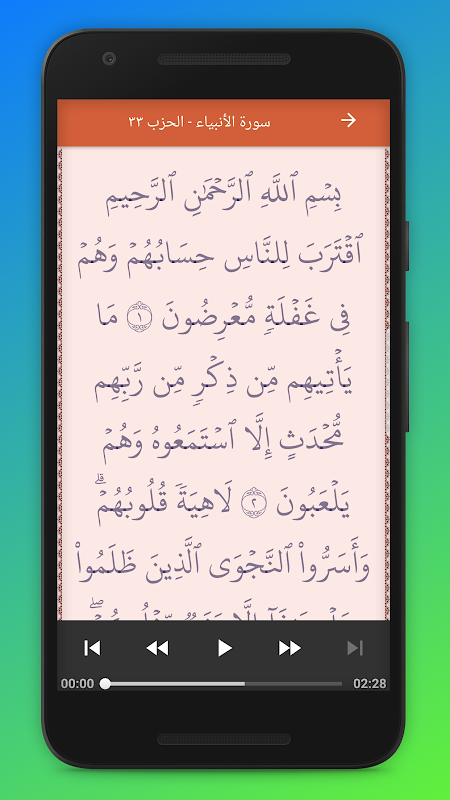 سورة الأنبياء - الحزب ٣٣
بِسۡمِ ٱللَّهِ ٱلرَّحۡمَٰنِ ٱلرَّحِيمِ
ٱقۡتَرَبَ لِلنَّاسِ حِسَابُهُمۡ وَهُمۡ
فِي غَفۡلَةٖ مُّعۡرِضُونَ ١ مَا
يَأۡتِيهِم مِّن ذِكۡرٖ مِّن رَّبِّهِم
مُّحۡدَثٍ إِلَّا ٱسۡتَمَعُوهُ وَهُمۡ
يَلۡعَبُونَ ٢ لَاهِيَةٗ قُلُوبُهُمۡۗ
وَأَسَرُّواْ ٱلنَّجۡوَى ٱلَّذِينَ ظَلَمُواْ
00:00 02:28